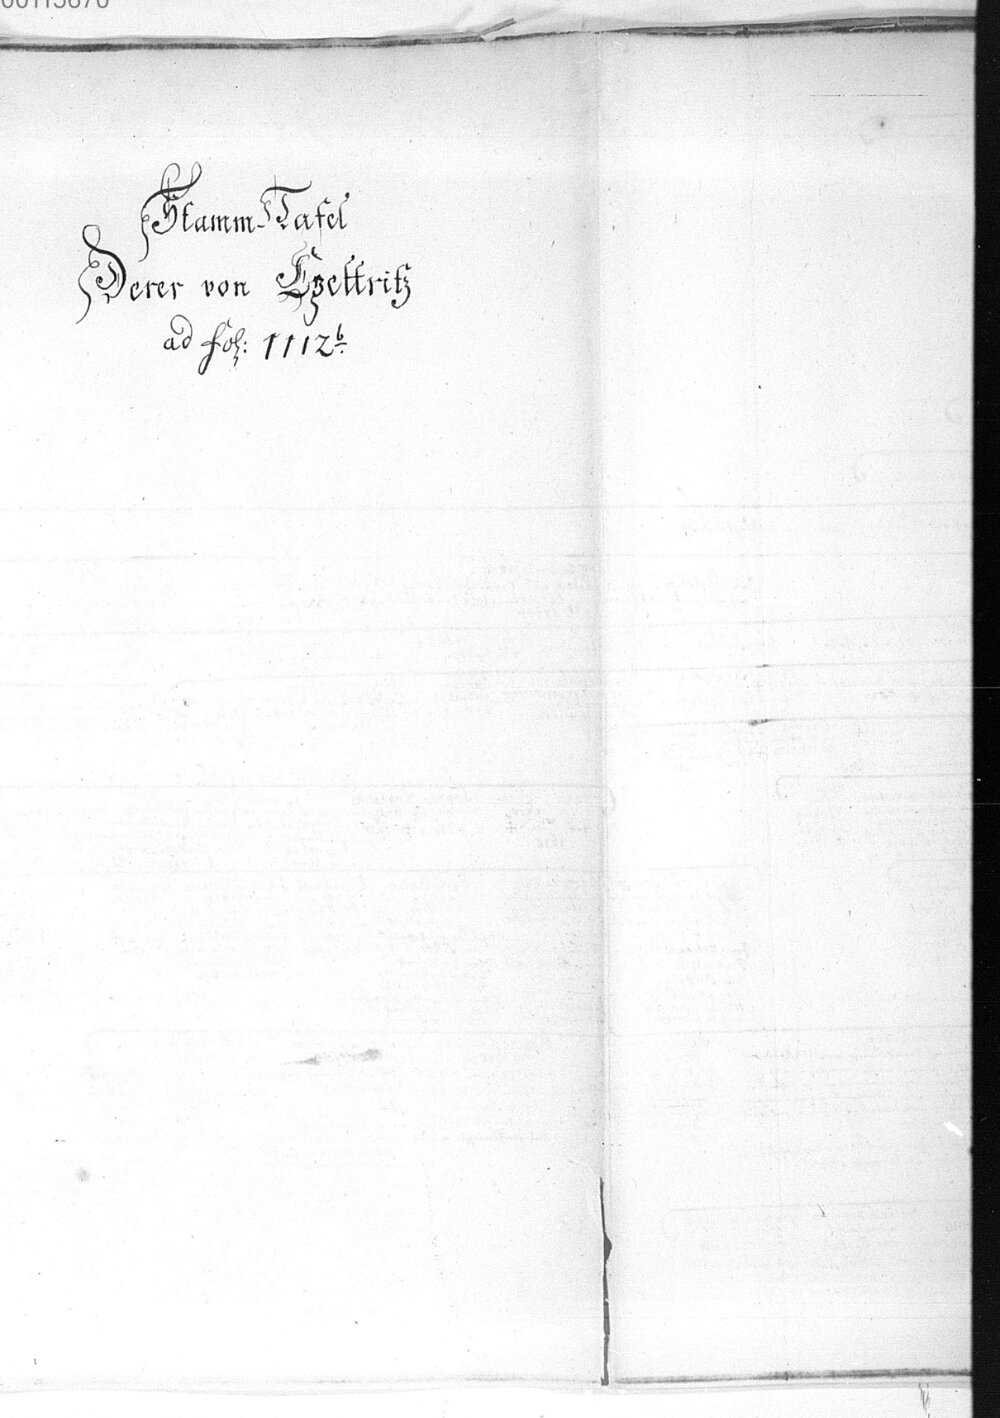 00115670
Stamm-Tafel
Derer von Czettritz
ad fol: 1112b.